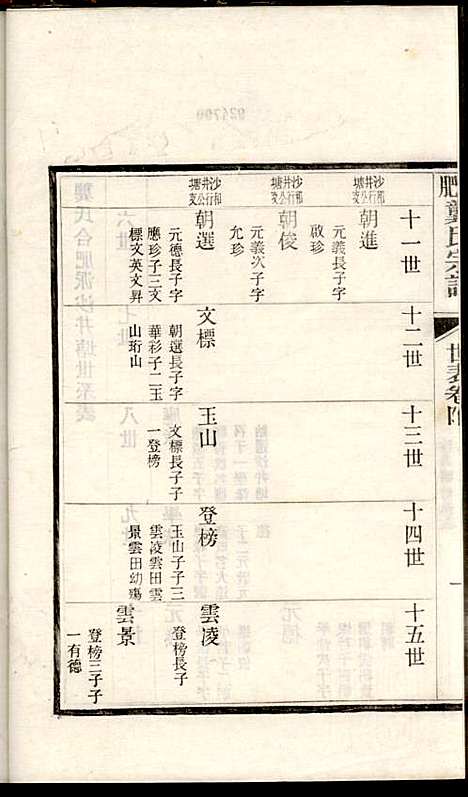 肥龔氏宗譜
世表卷附
一
十一世
沙和
井行
塘公
支
朝進
元義長子字
啟珍
沙和
井行
塘公
支
朝俊
元義次子字
允珍
沙和
井行
塘公
支
朝選
元德長子字
應珍子三文
標文英文昇
十二世
文標
朝選長子字
華彩子二玉
山珩山
十三世
玉山
文標長子子
一登榜
十四世
登榜
玉山子子三
雲凌雲田雲
景雲田幼殤
十五世
雲凌
登榜長子
雲景
登榜三子子
一有德